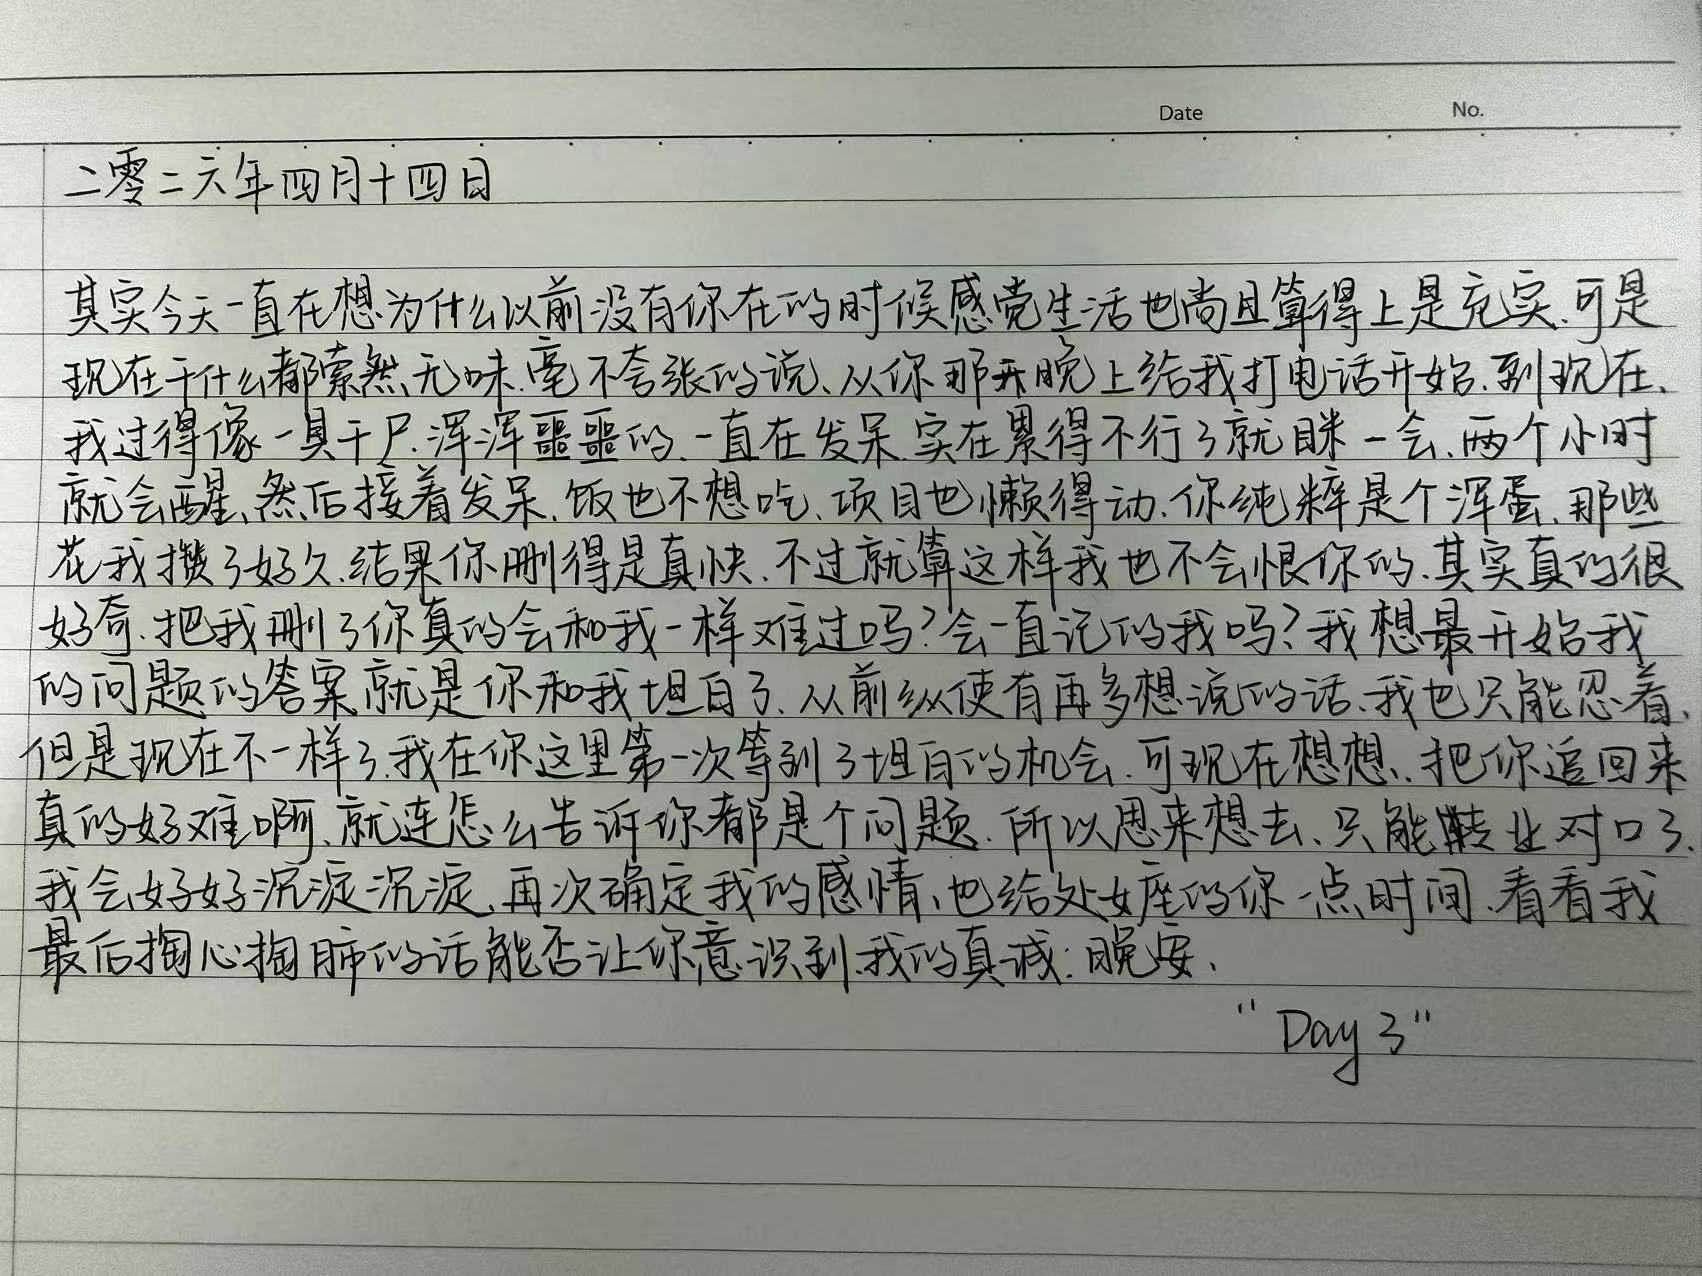 Date No.
二零二六年四月十四日
其实今天一直在想为什么以前没有你在的时候感觉生活也尚且算得上是充实、可是
现在干什么都索然无味、毫不夸张的说、从你那天晚上给我打电话开始、到现在、
我过得像一具干尸、浑浑噩噩的、一直在发呆、实在累得不行了就眯一会、两个小时
就会醒、然后接着发呆、饭也不想吃、项目也懒得动、你纯粹是个浑蛋、那些
花我攒了好久、结果你删得是真快、不过就算这样我也不会恨你的、其实真的很
好奇、把我删了你真的会和我一样难过吗?会一直记的我吗?我想最开始我
的问题的答案就是你和我坦白了、从前纵使有再多想说的话、我也只能忍着、
但是现在不一样了、我在你这里第一次等到了坦白的机会、可现在想想、把你追回来
真的好难啊、就连怎么告诉你都是个问题、所以思来想去、只能转业对口了、
我会好好沉淀沉淀、再次确定我的感情、也给处女座的你一点时间、看看我
最后掏心掏肺的话能否让你意识到我的真诚:晚安、
"Day 3"